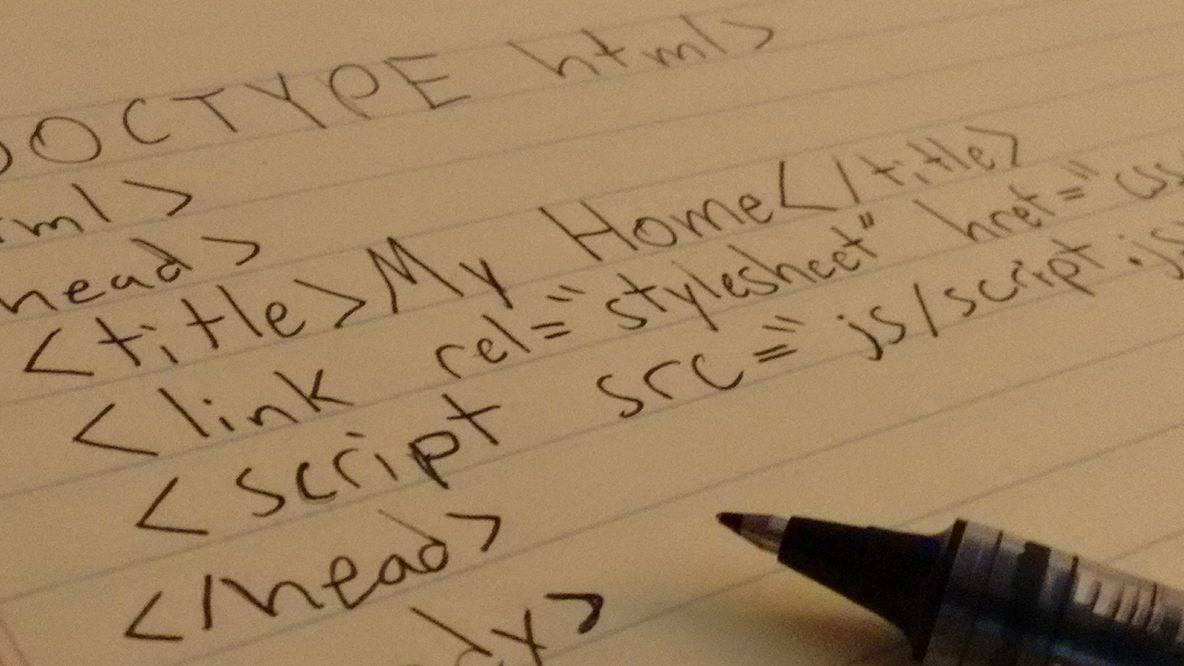 DOCTYPE html>
tml>
head>
<title>My Home</title>
<link rel="stylesheet" href="css
<script src="js/script.js
</head>
dy>